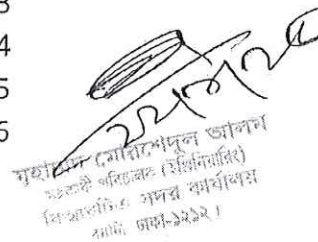 3
4
5
6
মুহাম্মদ মোরশেদুল আলম
সহকারী পরিচালক (ইঞ্জিনিয়ারিং)
বিআরটিএ সদর কার্যালয়
বনানী, ঢাকা-১২১২।